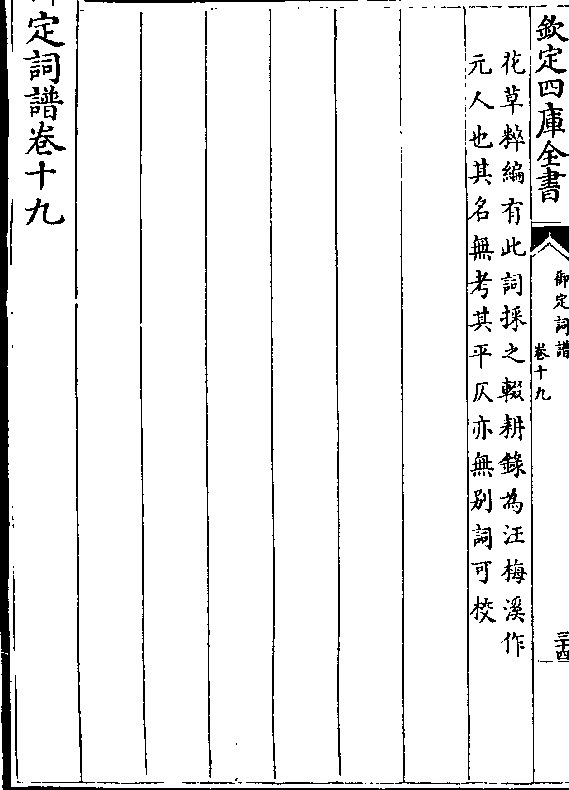 欽定四庫全書
御定詞譜
卷十九
三十四
花草粹編有此詞採之輟耕錄為汪梅溪作
元人也其名無考其平仄亦無别詞可校
御定詞譜卷十九